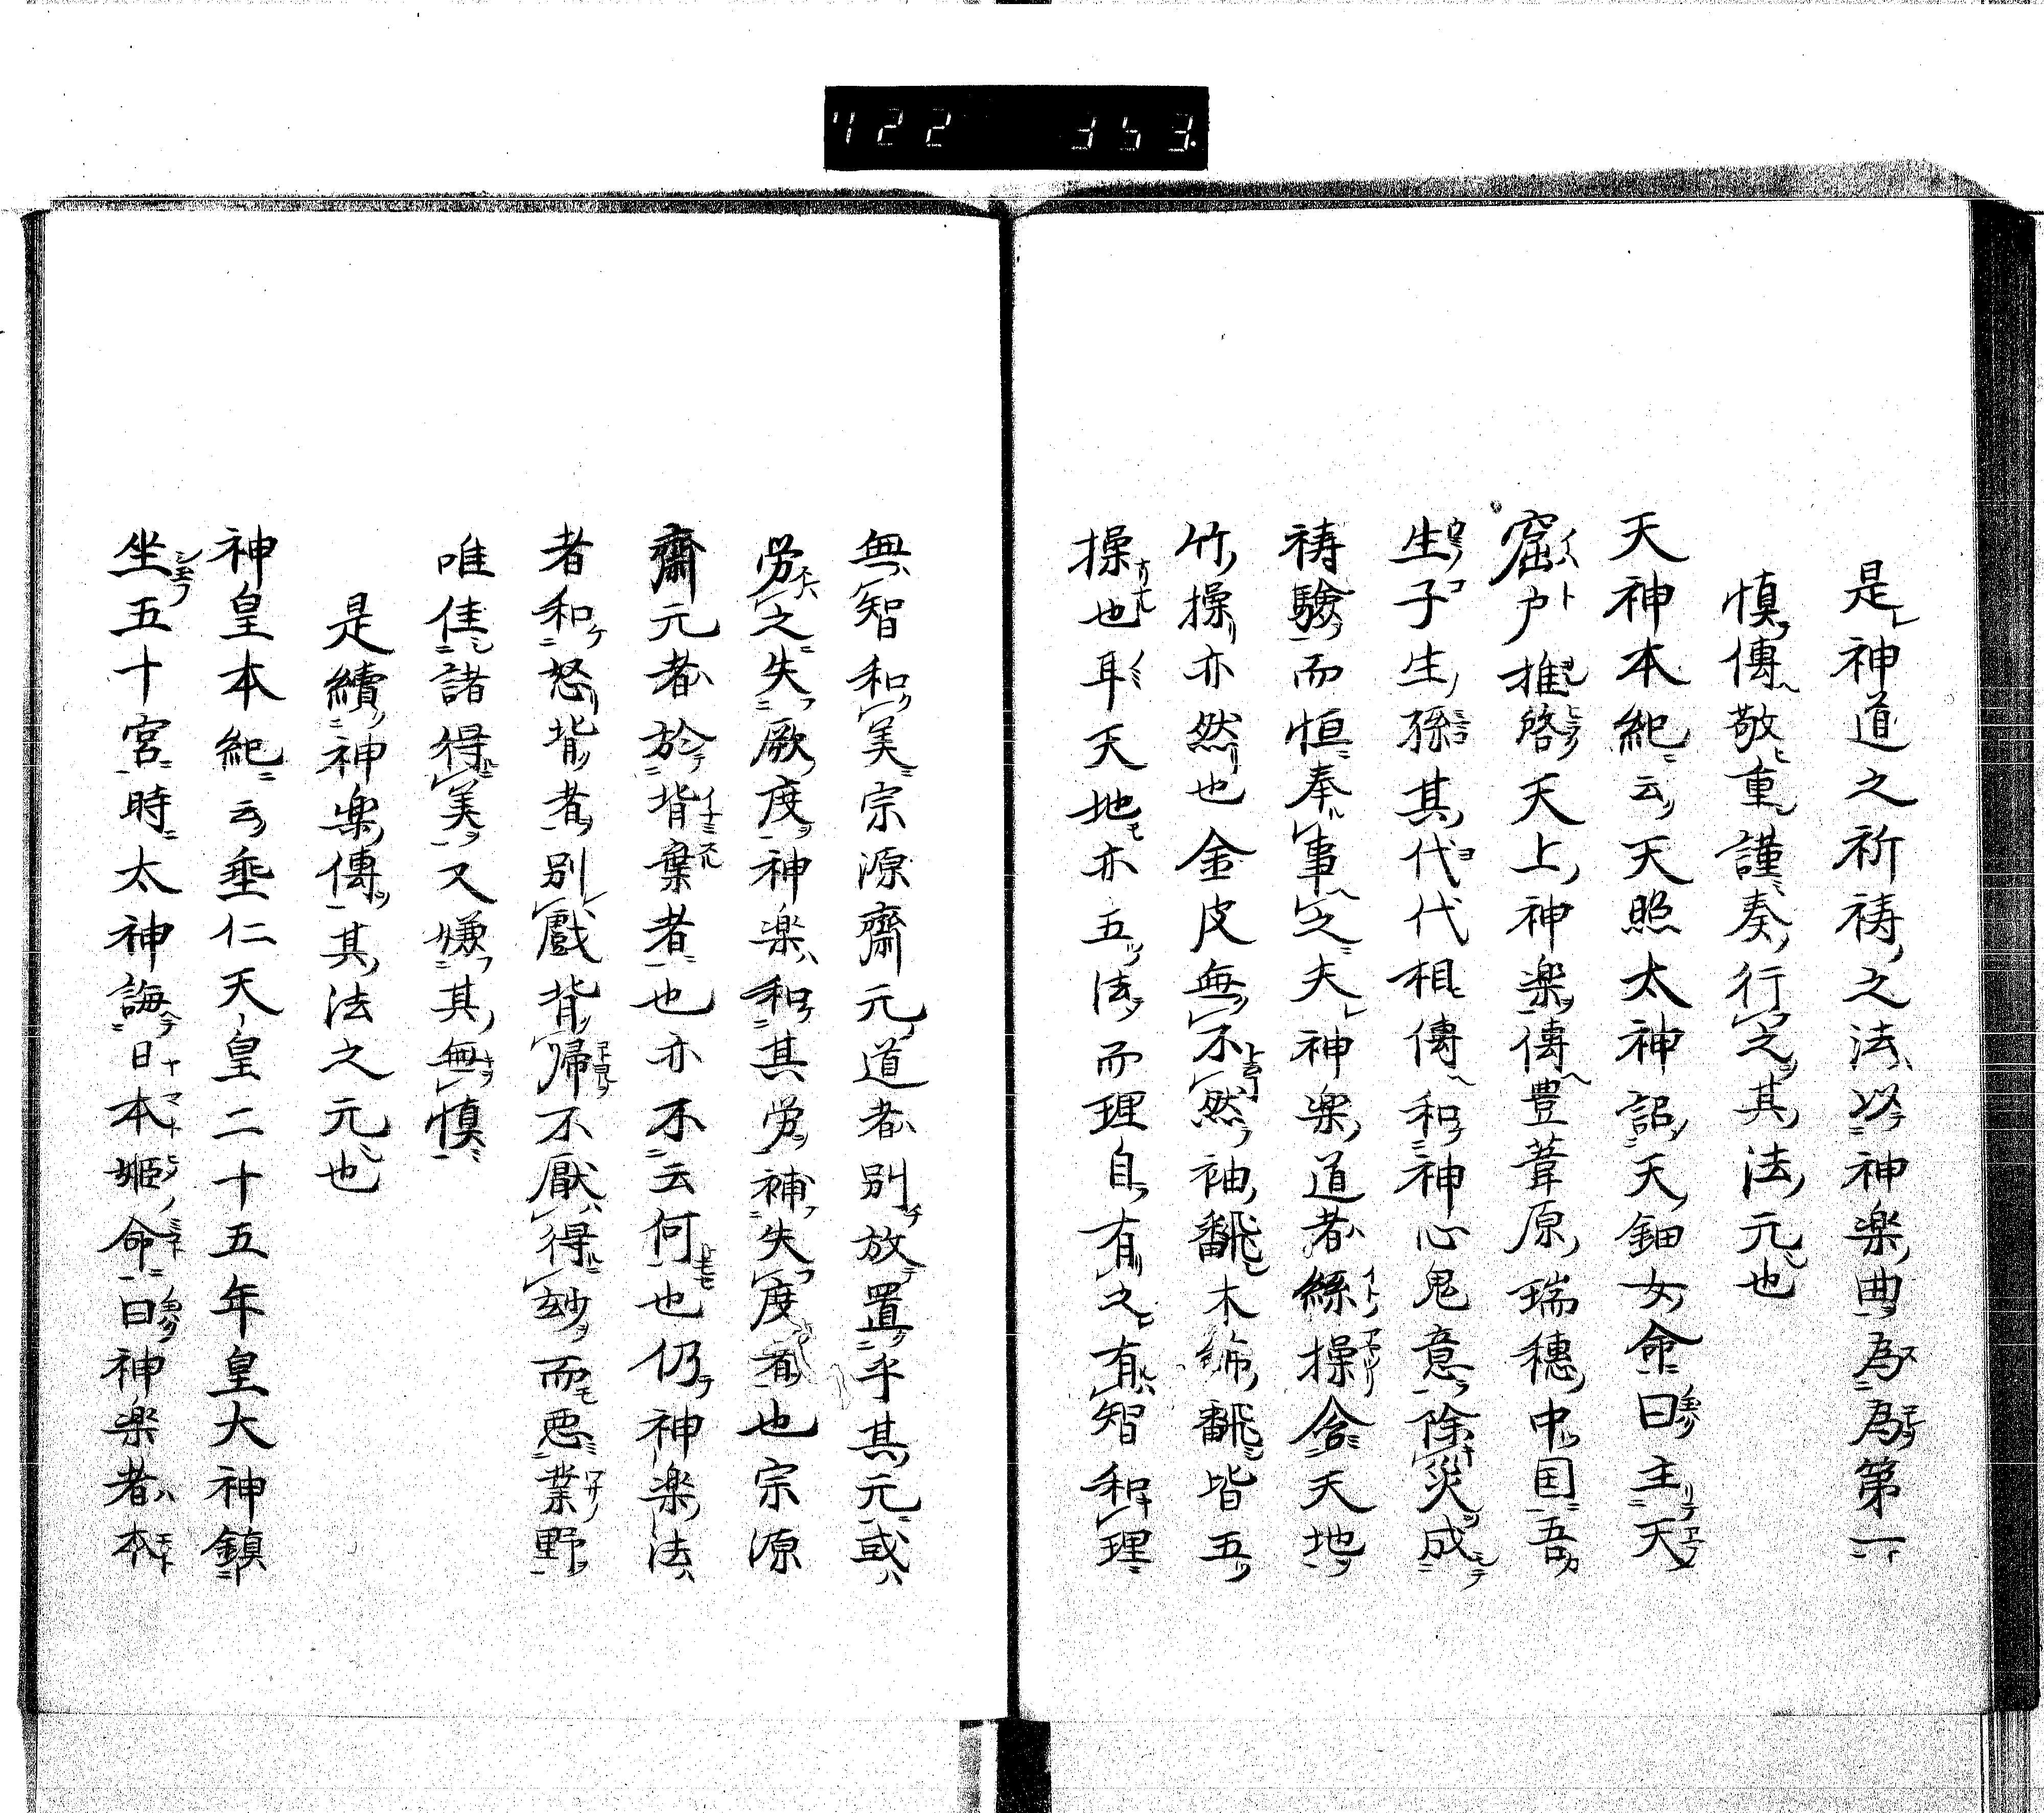 422 353
是神道之祈祷之法以神楽曲為為第一
慎傳敬重謹奏行之其法元也
天神本紀云天照太神詔天鈿女命曰主天
窟戸推啓天上神楽傳豊葦原瑞穗中国吾
生子生孫其代代相傳和神心鬼意除災成
祷驗而恒奉事之夫神楽道者絲操含天地
竹操亦然也金皮無不然袖翻木綿翻皆五
操也耳天地亦五法而理自有之有智和理
無智和美宗源齋元道者別放置乎其元或
労之失厥度神楽和其労補失度者也宗源
齋元者於背棄者也亦不云何也仍神楽法
者和怒背者別戲背帰不厭得妙而惡業野
唯佳諸得美又嫌其無慎
是續神楽傳其法之元也
神皇本紀云垂仁天皇二十五年皇大神鎮
坐五十宮時太神誨日本姫命曰神楽者本